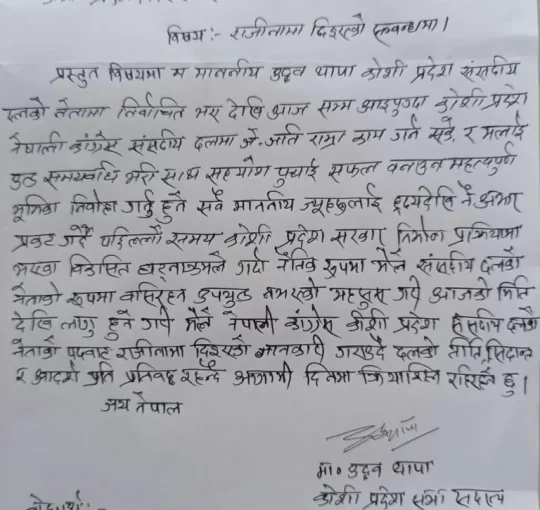 विषय :- राजीनामा दिइएको सम्बन्धमा।
प्रस्तुत विषयमा म माननीय उद्धव थापा कोशी प्रदेश संसदीय
दलको नेतामा निर्वाचित भए देखि आज सम्म आइपुग्दा कोशी प्रदेश
नेपाली कांग्रेस संसदीय दलमा जे. जति राम्रा काम गर्न सकें, र मलाई
समयावधि भरी साथ सहयोग पुर्‍याई सफल बनाउन महत्वपूर्ण
भूमिका निर्वाह गर्नु हुने सबै माननीय ज्यूहरुलाई हृदयदेखि नै आभार
प्रकट गर्दै पछिल्लो समय कोशी प्रदेश सरकार निर्माण प्रक्रियामा
भएका विकसित घटनाक्रमले गर्दा नैतिक रुपमा मैले संसदीय दलको
नेताको रुपमा बसिरहन उपयुक्त नभएको महसुस गरी आजको मिति
देखि लागु हुने गरी मैले नेपाली कांग्रेस कोशी प्रदेश संसदीय दलको
नेताको पदबाट राजीनामा दिइएको जानकारी गराउदै दलको निति, सिद्धान्त
र आदर्श प्रति प्रतिबद्ध रहँदै आगामी दिनमा क्रियाशिल रहिरहने छु।
जय नेपाल
मा० उद्धव थापा
कोशी प्रदेश सभा सदस्य